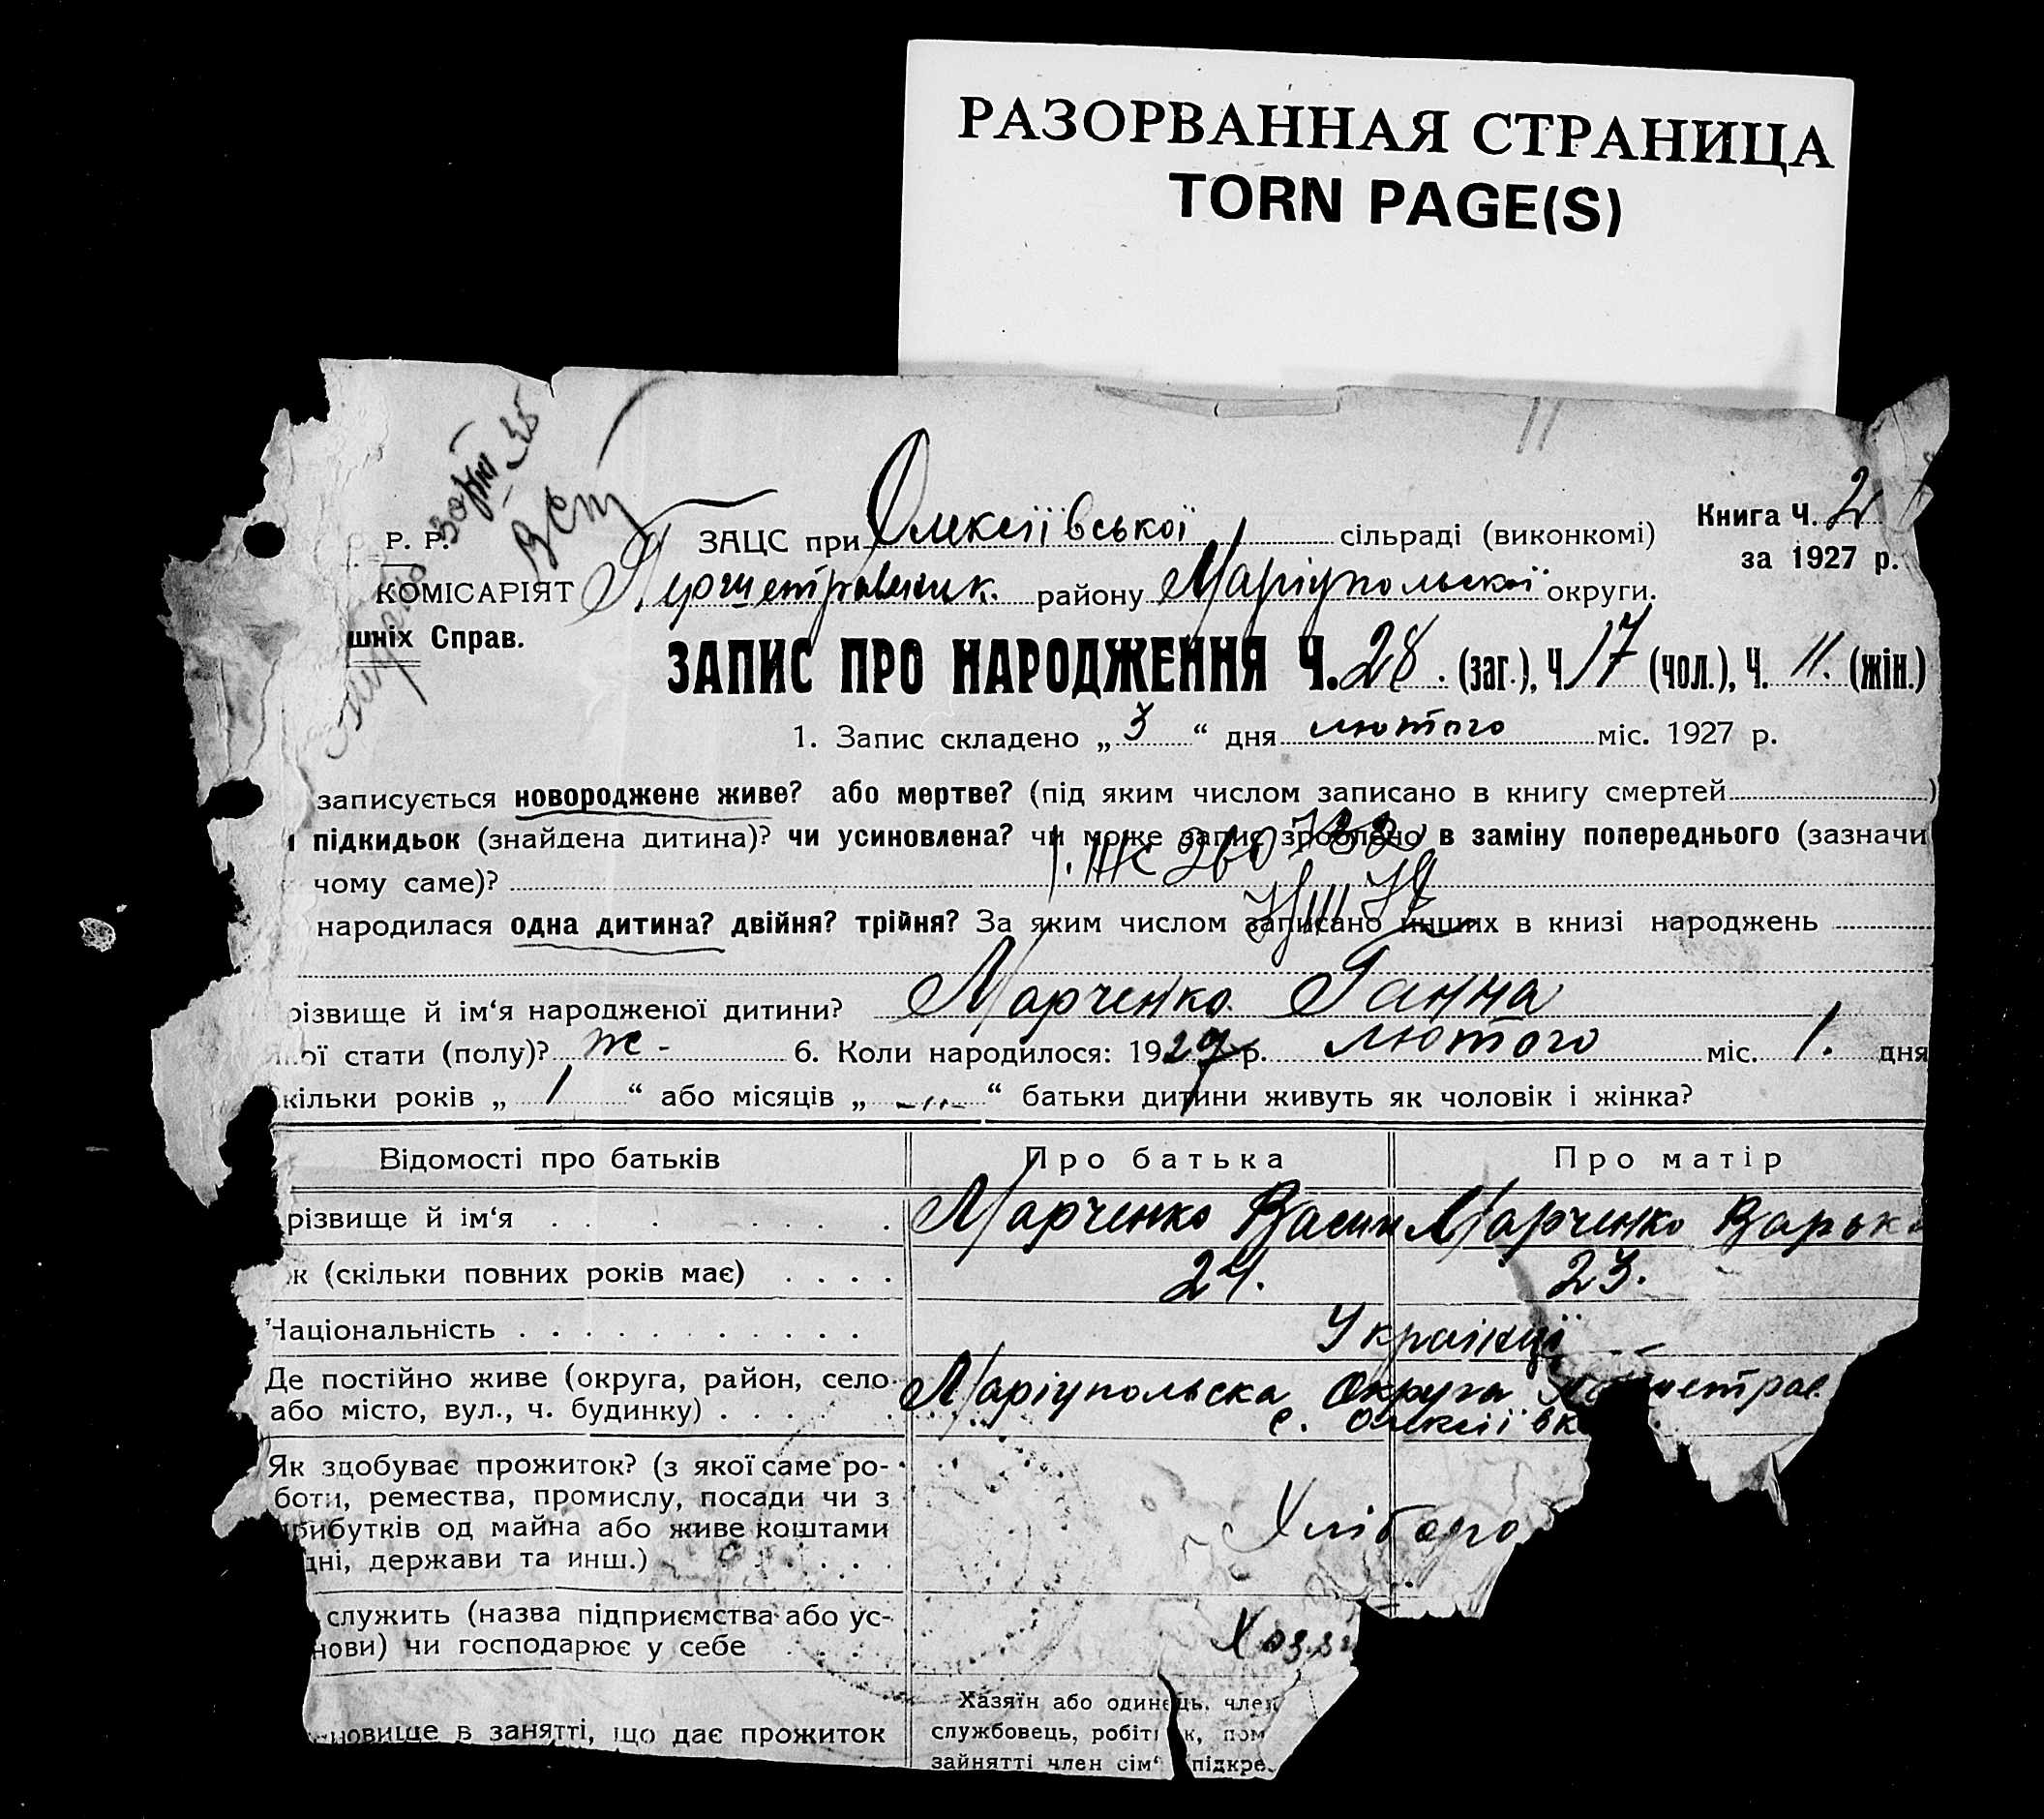 РАЗОРВАННАЯ СТРАНИЦА
TORN PAGE(S)
Книга Ч. 2
за 1927 р.
Р. Р. ЗАЦС при Олексіївської сільраді (виконкомі)
КОМІСАРІЯТ району Маріупольскої округи.
шніх Справ.
ЗАПИС ПРО НАРОДЖЕННЯ Ч. 28. (заг.), Ч 17 (чол.), Ч. 11. (жін.)
1. Запис складено „ 3 “ дня лютого міс. 1927 р.
записується новороджене живе? або мертве? (під яким числом записано в книгу смертей )
підкидьок (знайдена дитина)? чи усиновлена? чи може запис зроблено в заміну попереднього (зазначи
чому саме)?
народилася одна дитина? двійня? трійня? За яким числом записано инших в книзі народжень
різвище й ім‘я народженої дитини? Марченко Ганна
ої стати (полу)? ж - 6. Коли народилося: 1927 р. лютого міс. 1. дня
кільки років „ 1 “ або місяців „ -„- “ батьки дитини живуть як чоловік і жінка?
Відомості про батьків Про батька Про матір
різвище й ім‘я . . . . . . . . Марченко Васил Марченко Варька
к (скільки повних років має) . . . . 24. 23.
Національність . . . . . . . . . . . Українці
Де постійно живе (округа, район, село Маріупольска округа
або місто, вул., ч. будинку) . . . . . с. Олексіївк
Як здобуває прожиток? (з якої саме ро-
боти, ремества, промислу, посади чи з
рибутків од майна або живе коштами Хлібаро
дні, держави та инш.) . . . . . .
служить (назва підприємства або ус-
нови) чи господарює у себе . . . . Хазя
Хазяїн або одинець, член
новище в занятті, що дає прожиток службовець, робітник, пом
зайнятті член сім‘ підкре